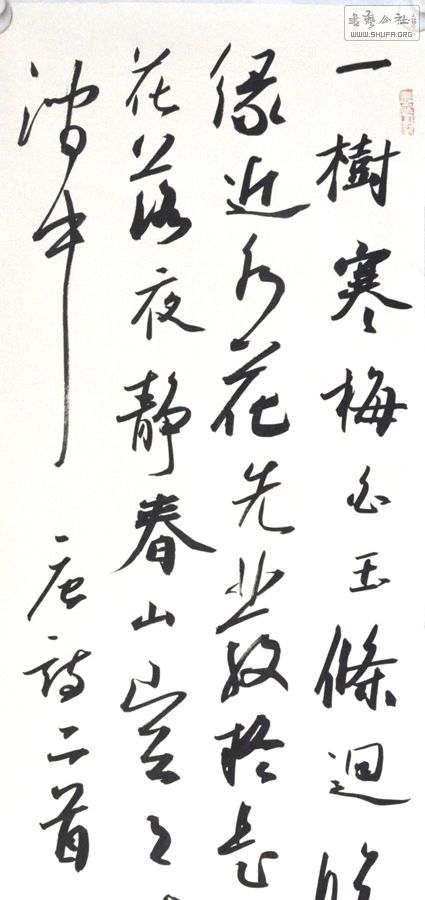 書藝公社
WWW.SHUFA.ORG
一樹寒梅白玉條迥
緣近水花先發疑是
花落夜靜春山空月
澗中
唐詩二首